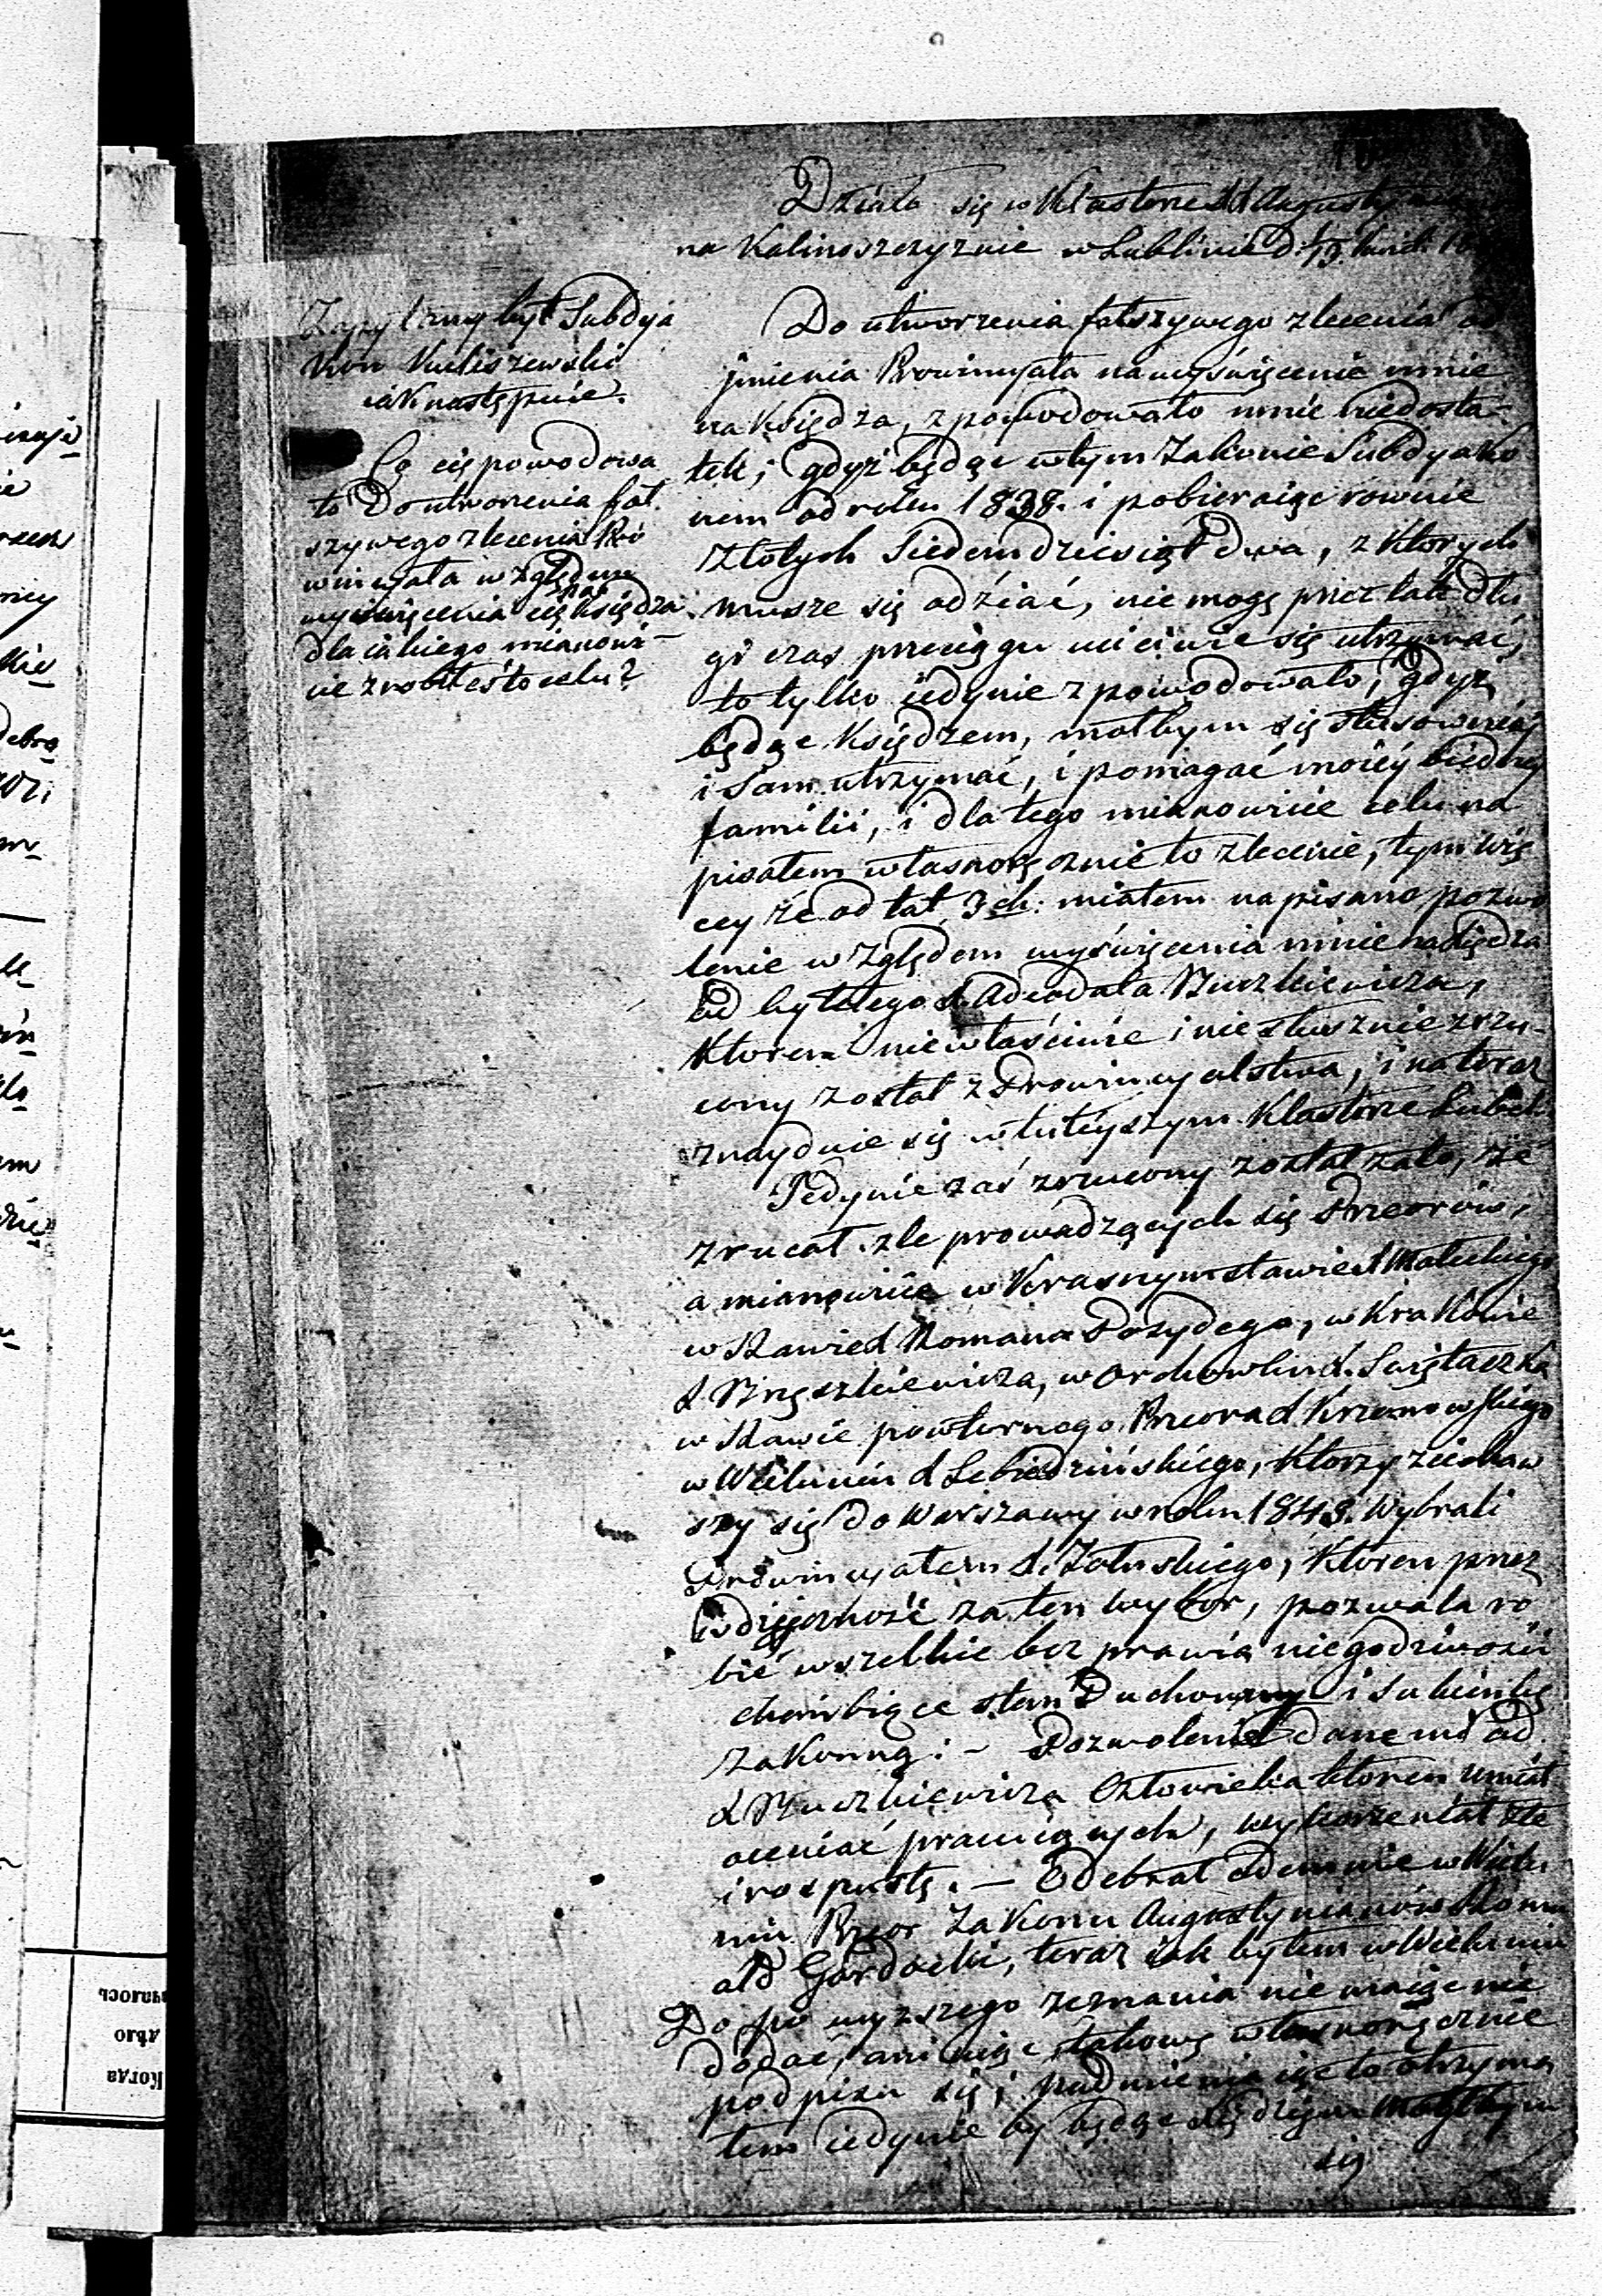 Działo się w Klastorze XX Augustynia
na Kalinoszczyznie w Lublinie D. 1/13 Kwiet. 18
Zapytany był Subdya
kon Kuliszewski
iak następuie.
Co cię powodowa
ło Do utworzenia fał
szywego zlecenia Pro
wincyała względem
wyświęcenia cię na Księdza
dla iakiego mianowi-
cie zrobiłeś to celu?
Do utworzenia fałszywego zlecenia od
jmienia Prowincyała na wyświęcenie mnie
na Księdza, zpowodowało mnie niedosta-
tek; gdyż będąc w tym Zakonie Subdyako
nem od roku 1838. i pobieraiąc rownie
Złotych Siedemdziesiąt dwa, z których
musze się odziać, nie mogę przez tak dłu
gi czas przeciągu uciciwie się utrzymać,
to tylko iedynie zpowodowało, gdyż
będąc Księdzem, mółbym się stosowniey
i Sam utrzymać, i pomagać moiey biedney
familii, i dla tego mianowicie celu na
pisałem własnoręcznie to zlecenie, tym wię
cey że od lat 3ch: miałem napisano pozwo
lenie względem wyświęcenia mnie na Księdza
od byłtego X. Adeodata Szuszkiewicza,
Ktoren niewłaściwie i niesłusznie zrzu-
cony został z Prowincyalstwa, i na teraz
znayduie się w tuteyszym Klastorze Lubel.
Jedynie zaś zrzucony został zato, że
zrucał zle prowadzących się Przeorów,
a mianowicie w Krasnymstawie X Małeckiego
w Rawie X Romana Pozydego, w Krakowie
X Stręszkiewicza, w Orchowku X. Swiętaszka
w Rawie powturnego Przeora X Krzanowskiego
w Wieluniu X Lebiedzińskiego, Ktorzy ziechaw
szy się do Warszawy w roku 1843. Wybrali
Prowincyałem X. Załuskiego, Ktoren przez
wdzięczność za ten wybor, pozwala ro
bić wszelkie bez prawia niegodziwości
chańbiące stan Duchowny i Sukienkę
Zakonną: – Pozwolenie dane mi od
X Szuszkiewicza Człowieka ktoren umiał
oceniać pracuiących, wykorzeniał złe
i rospustę. – Odebrał odemnie w Wielu
niu Przeor Zakonu Augustynianów Romu
ald Gardocki, teraz iak byłem w Wieluniu
Do powyższego zeznania nie maiąc nic
dodać, ani uiąć takowę własnoręcznie
podpisu się; nadmieniaiąc to otrzyma
łem iedynie by będąc Księdzem mógłbym
się